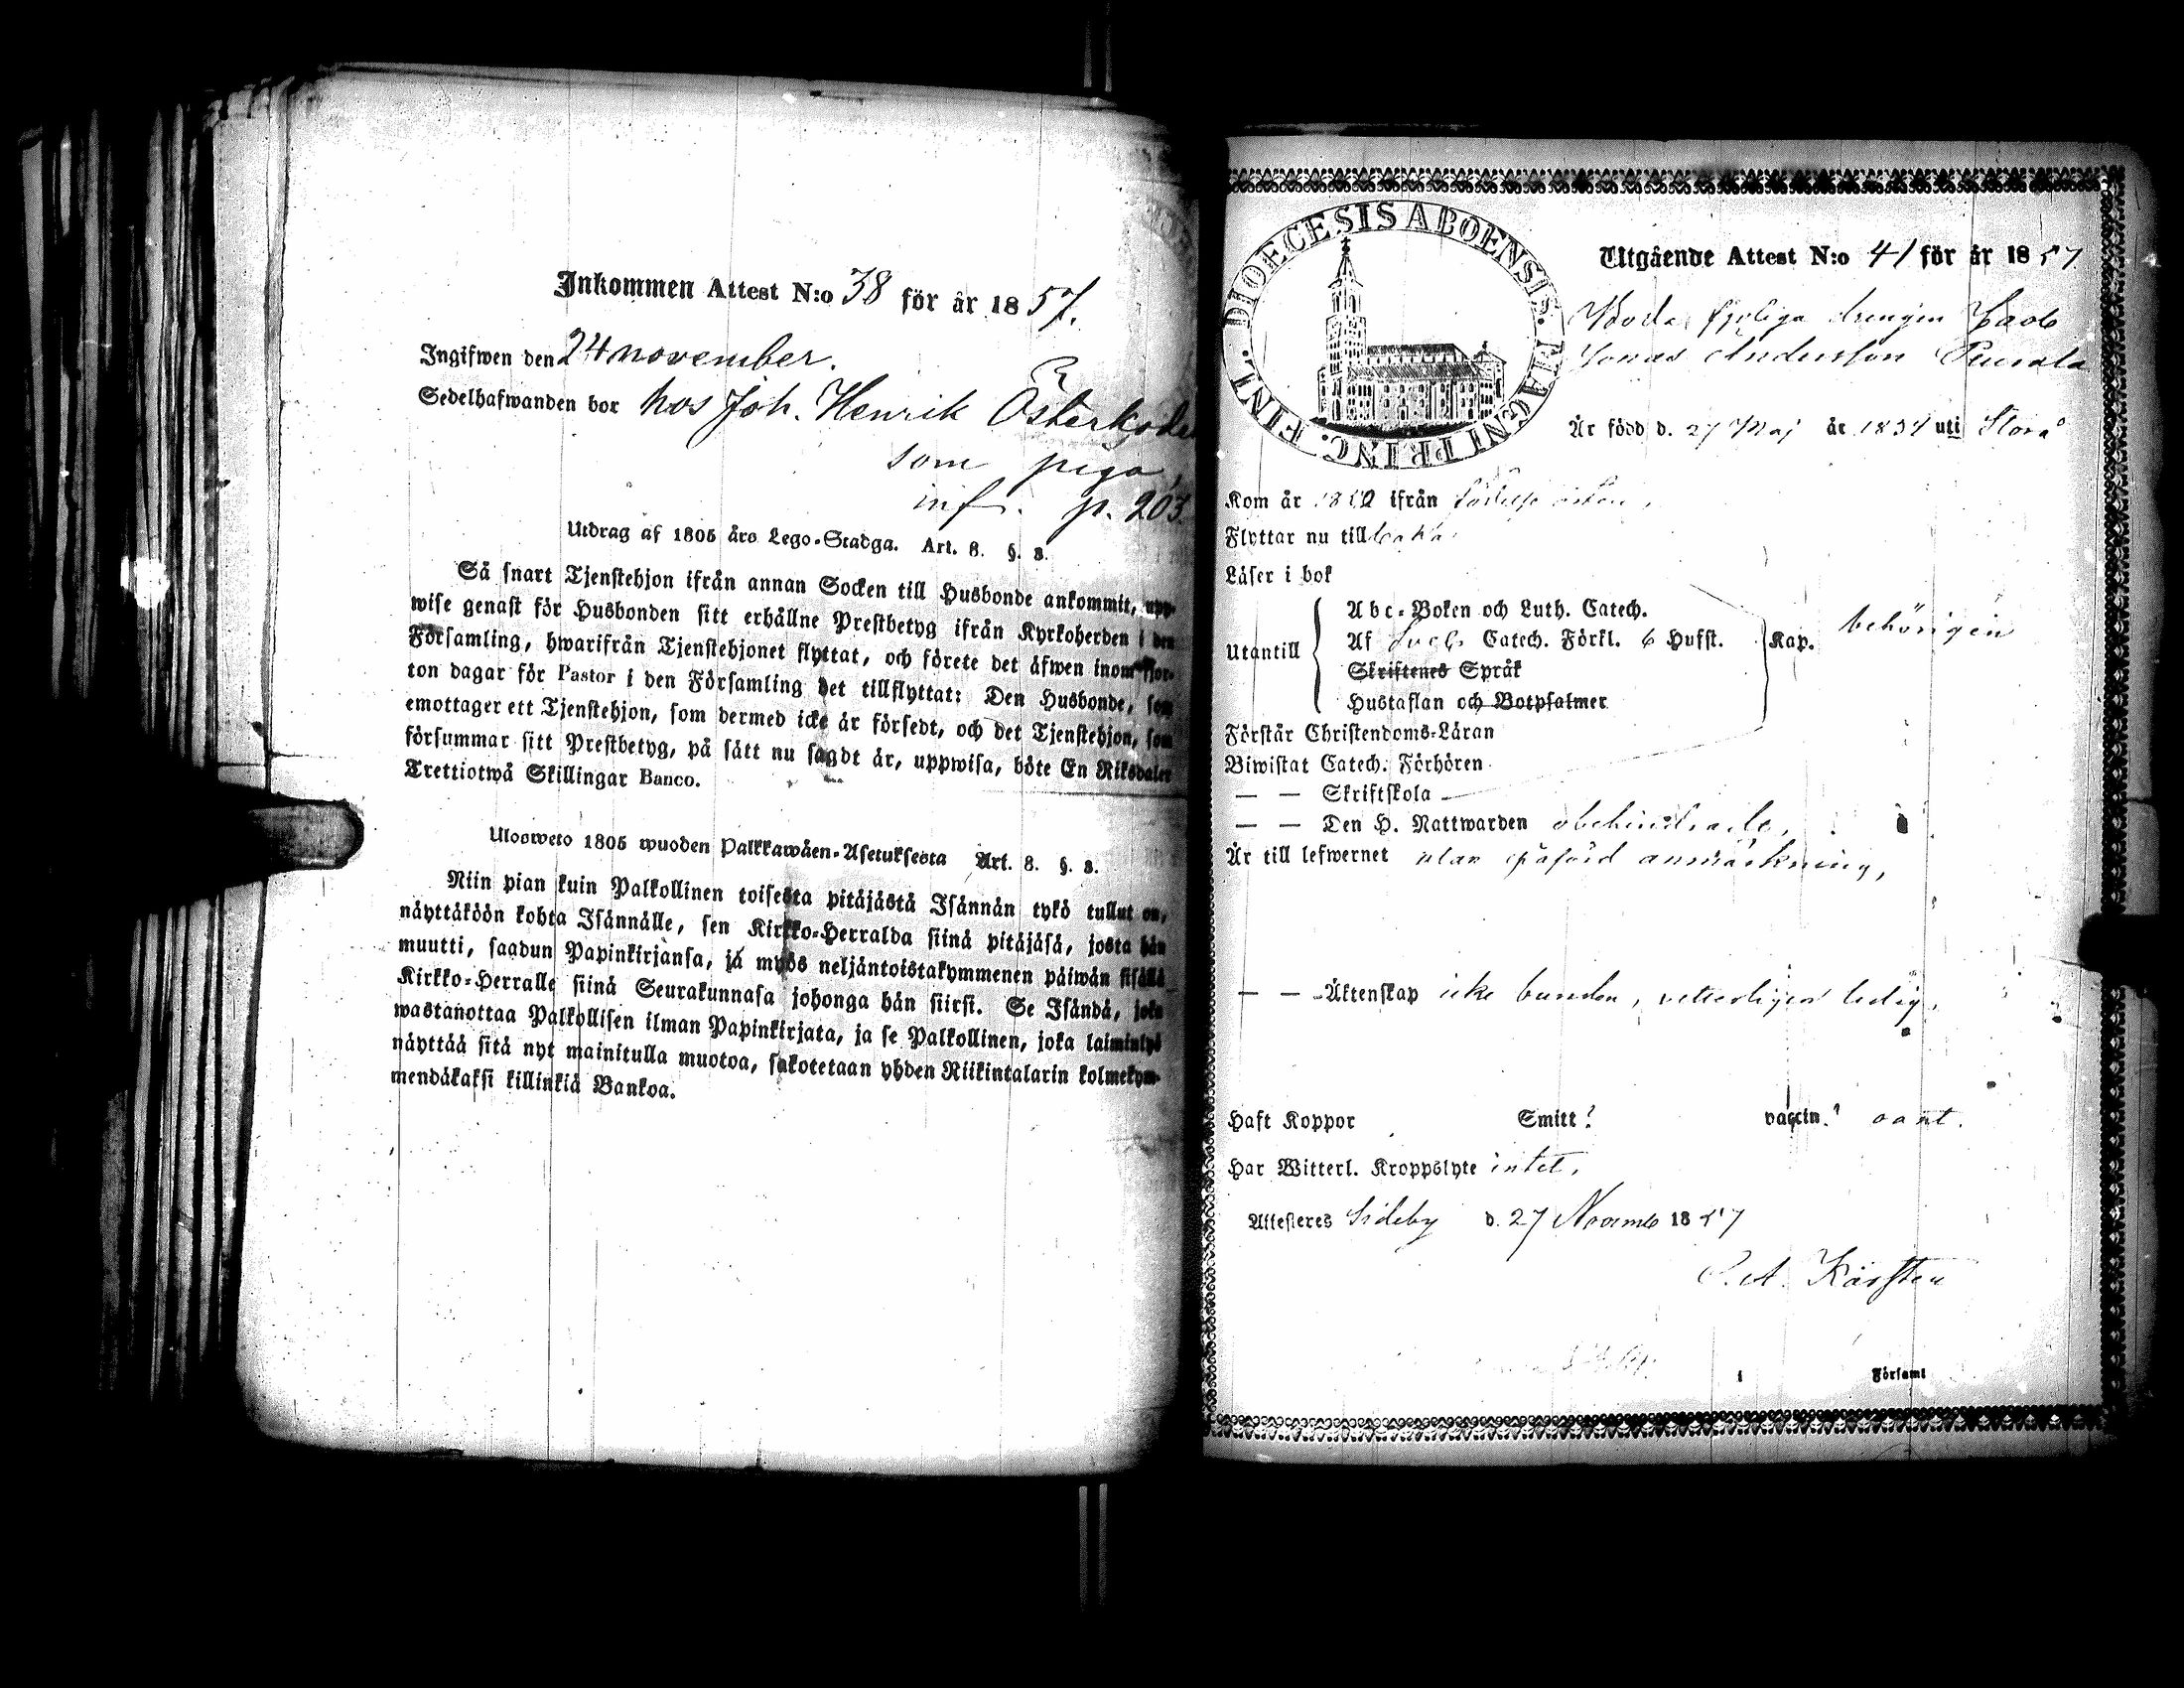 Inkommen Attest N:o 38 för år 1857.
Ingifwen den 24 november.
Sedelhafwanden bor hos Joh. Henrik Österkoda
som piga,
inf. p. 203.
Utdrag af 1805 års Lego-Stadga. Art. 8. §. 3.
Så snart Tjenstehjon ifrån annan Socken till Husbonde ankommit, upp-
wise genast för Husbonden sitt erhållne Prestbetyg ifrån Kyrkoherden i den
Församling, hwarifrån Tjenstehjonet flyttat, och förete det äfwen inom fjor-
ton dagar för Pastor i den Församling det tillflyttat: Den Husbonde, som
emottager ett Tjenstehjon, som dermed icke är försedt, och det Tjenstehjon, som
försummar sitt Prestbetyg, på sätt nu sagdt är, uppwisa, böte En Riksdaler
Trettiotwå Skillingar Banco.
Ulosweto 1805 wuoden Palkkawäen-Asetuksesta Art. 8. §. 3.
Niin pian kuin Palkollinen toisesta pitäjästä Isännän tykö tullut on,
näyttäköön kohta Isännälle, sen Kirkko-Herralda siinä pitäjäsä, josta hän
muutti, saadun Papinkirjansa, ja myös neljäntoistakymmenen päiwän sisällä
Kirkko-Herralle siinä Seurakunnasa johonga hän siirsi. Se Isändä, joka
wastanottaa Palkollisen ilman Papinkirjata, ja se Palkollinen, joka laiminlyö
näyttää sitä nyt mainitulla muotoa, sakotetaan yhden Riikintalarin kolmekym-
mendäkaksi killinkiä Bankoa.
DIOECESIS ABOENSIS. MAGNI PRINC. FINL.
Utgående Attest N:o 41 för år 1857
drengen Jacob
Jonas Andersson
Är född d. 27 Maj år 1837 uti Storå
Kom år ifrån
Flyttar nu till baka
Läser i bok
Utantill
Abc-Boken och Luth. Catech.
Af Catech. Förkl. 6 Hufst. Kap. behörigen
Skriftenes Språk
Hustaflan och Botpsalmer
Förstår Christendoms-Läran
Biwistat Catech. Förhören
— — Skriftskola
— — Den H. Nattwarden obehindrade,
Är till lefwernet utan påförd anmärkning,
— — Äktenskap icke bunden, veterligen ledig,
Haft Koppor Smitt? vaccin.?
Har Witterl. Kroppslyte intet,
Attesteres Sideby d. 27 Novemb 1857
C. A. Kärsten
i Församl